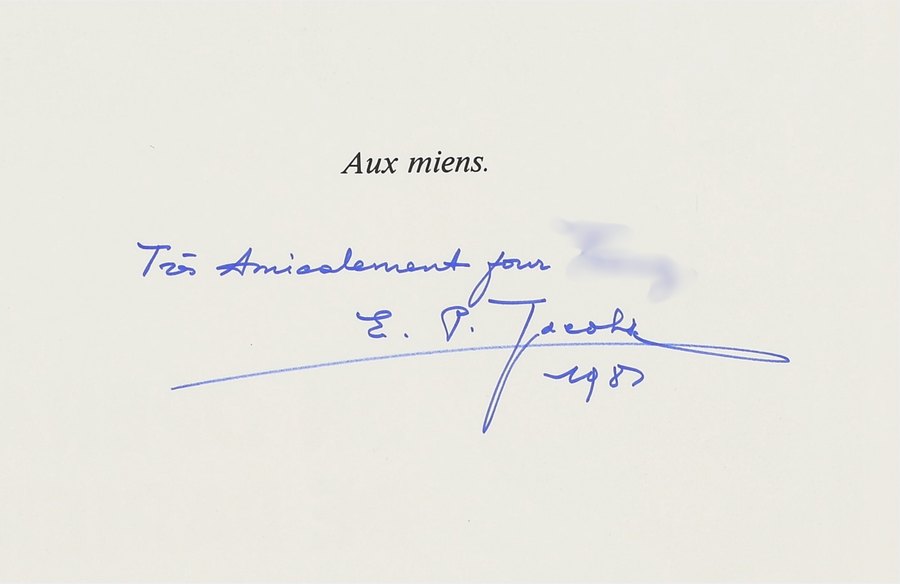 Aux miens.
Très Amicalement pour
E. P. Jacobs